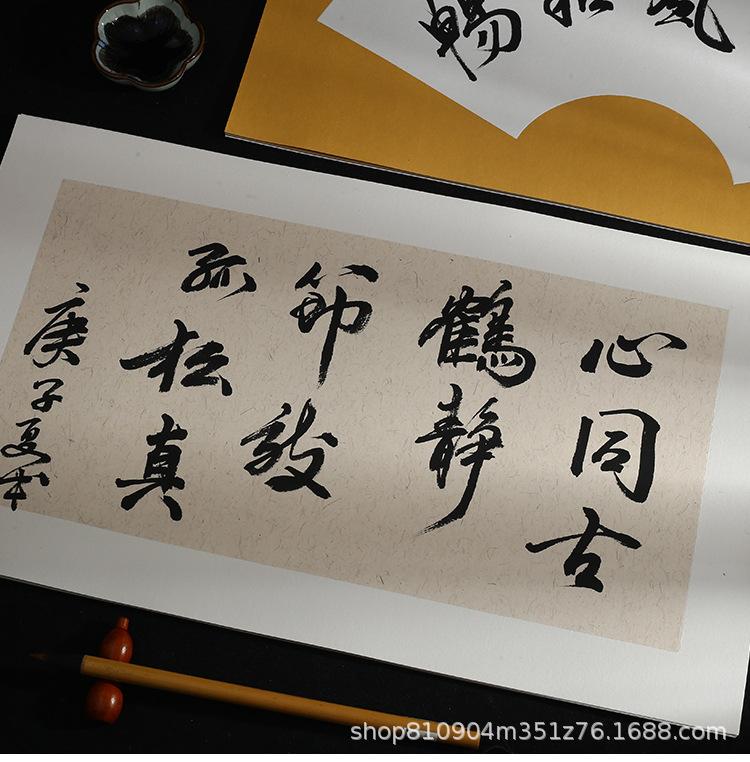 風
和
暢
心同古
鶴静
節效
孤松真
庚子夏
shop810904m351z76.1688.com